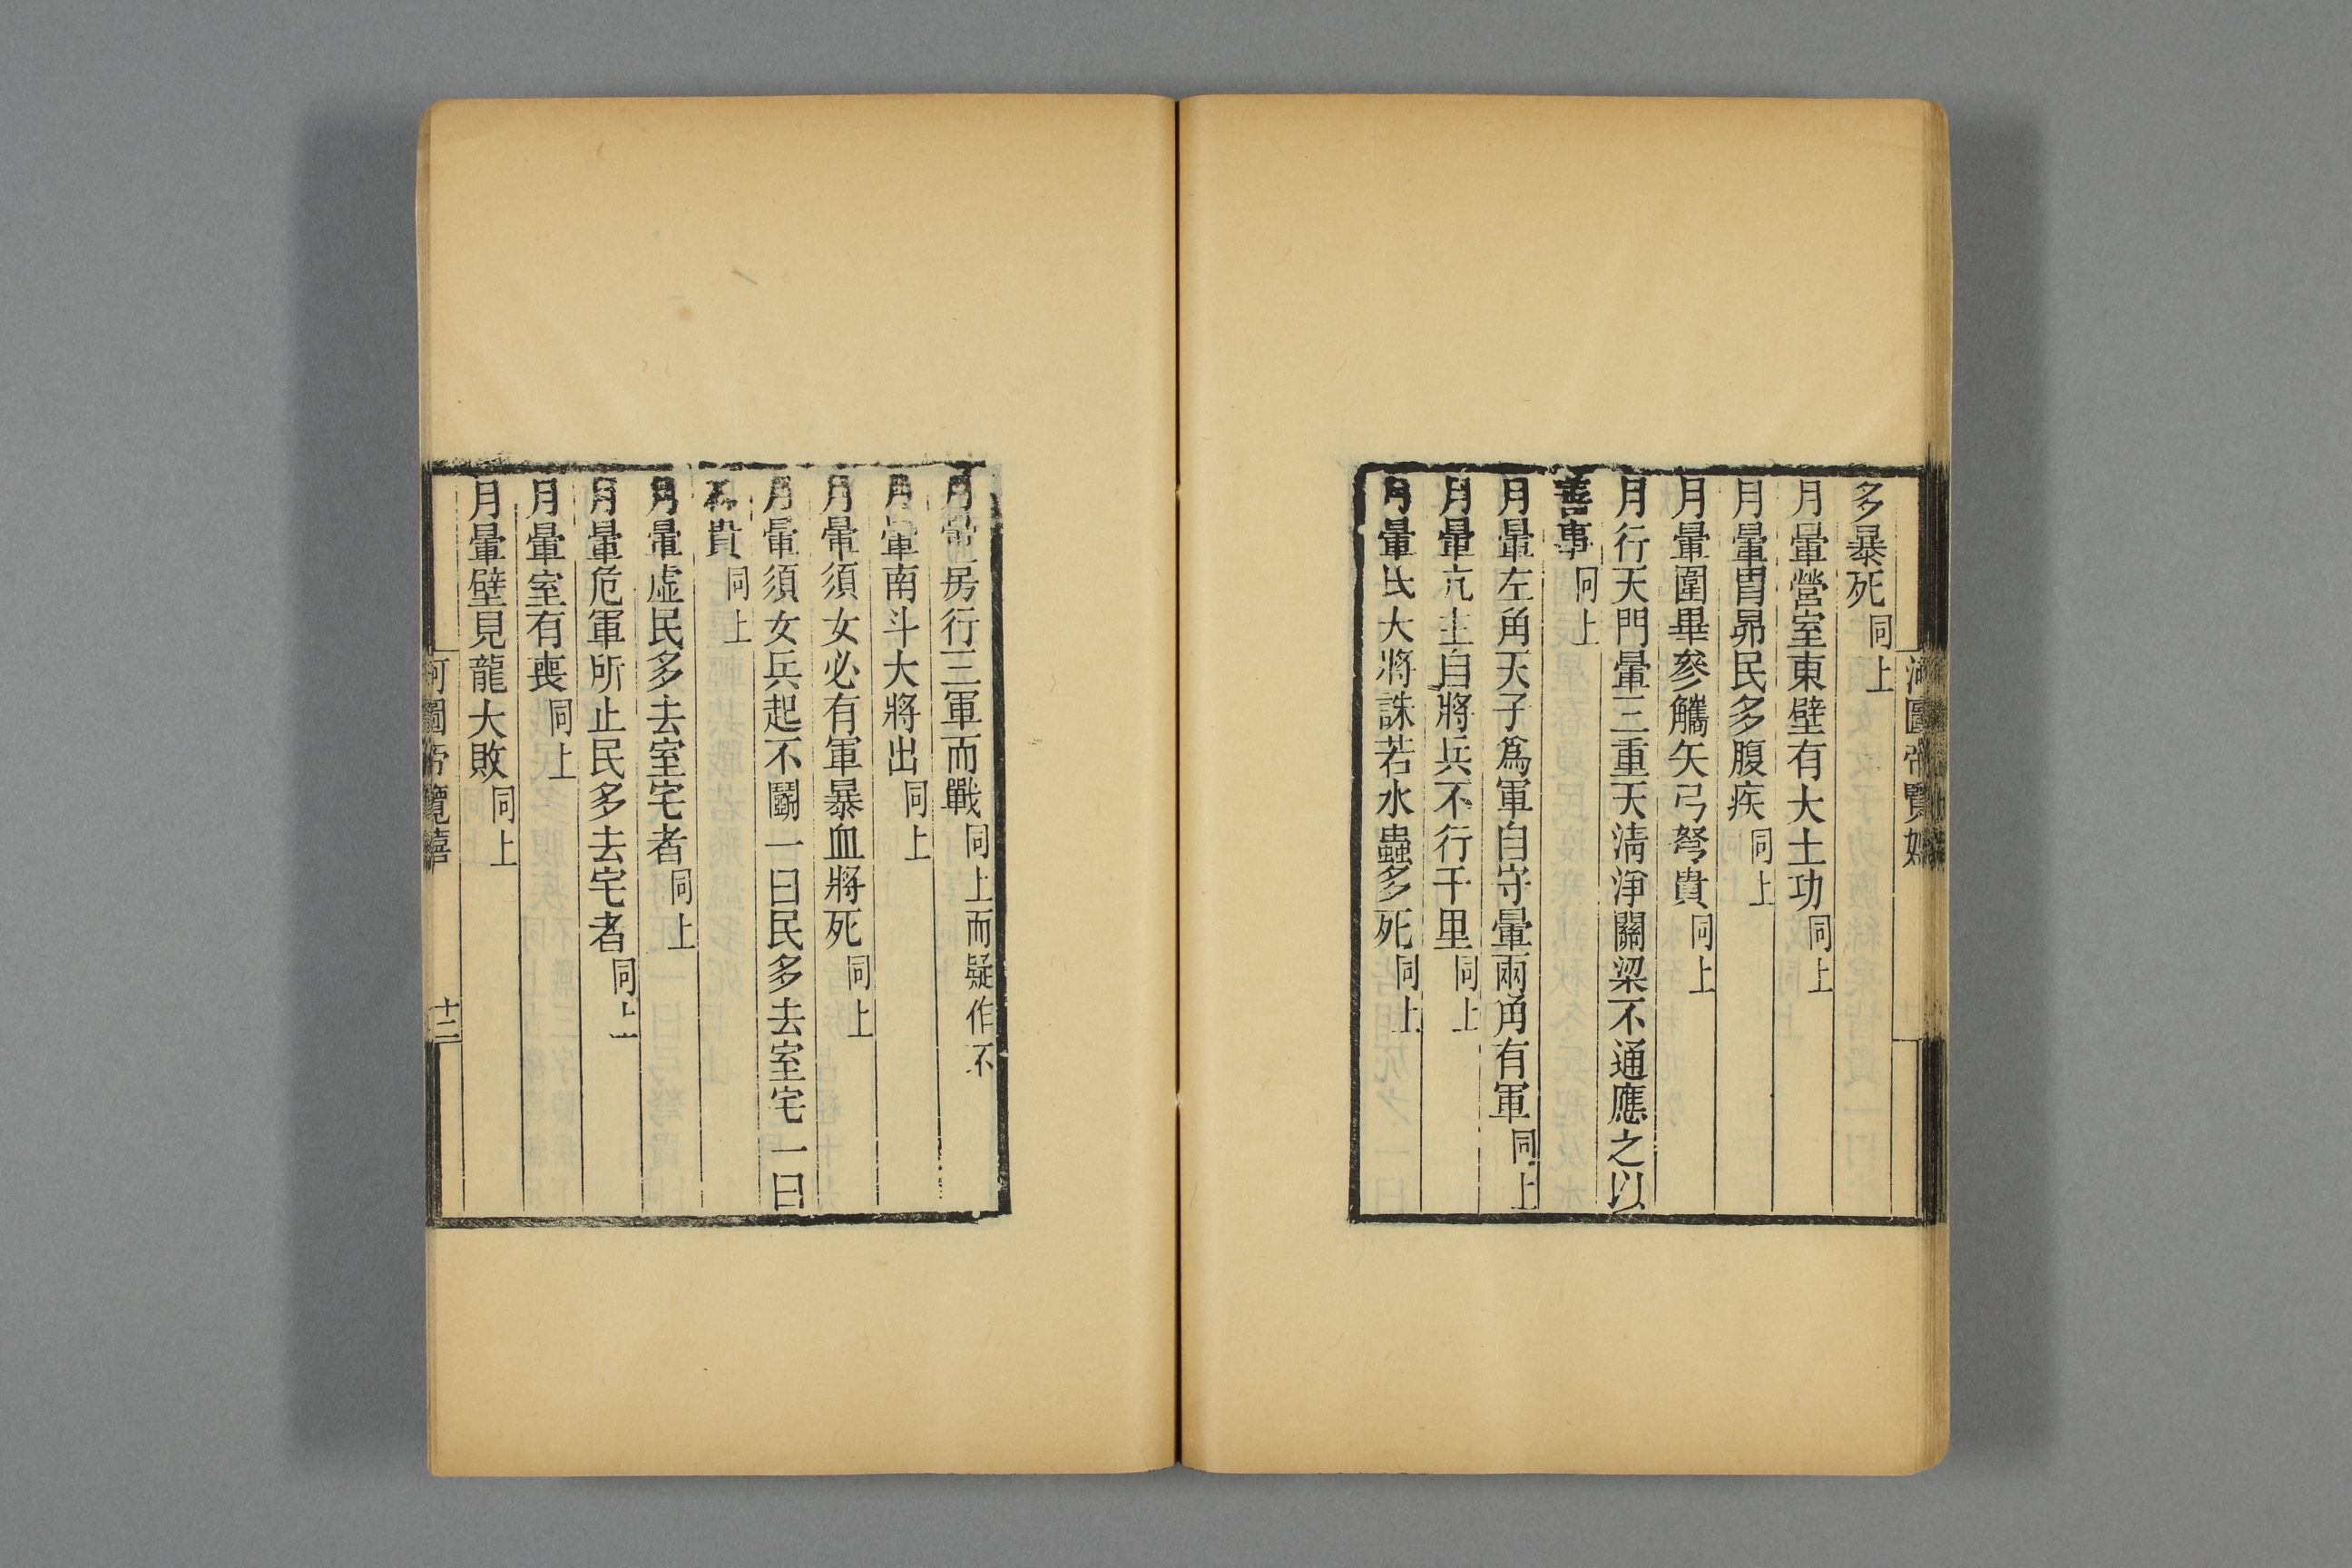 多暴死同上
月暈營室東壁有大土功同上
月暈胃昴民多腹疾同上
月暈圍畢參觿矢弓弩貴同上
月行天門暈三重天清淨關梁不通應之以
善事同上
月暈左角天子爲軍自守暈兩角有軍同上
月暈亢主自將兵不行千里同上
月暈氐大將誅若水蟲多死同上
月暈房行三軍而戰同上而疑作不
月暈南斗大將出同上
月暈須女必有軍暴血將死同上
月暈須女兵起不鬭一曰民多去室宅一曰
貴同上
月暈虛民多去室宅者同上
月暈危軍所止民多去宅者同上
月暈室有喪同上
月暈壁見龍大敗同上
河圖帝覽嬉
十二